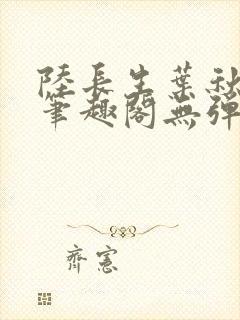 陸長生葉秋
筆趣閣無彈
齊憲